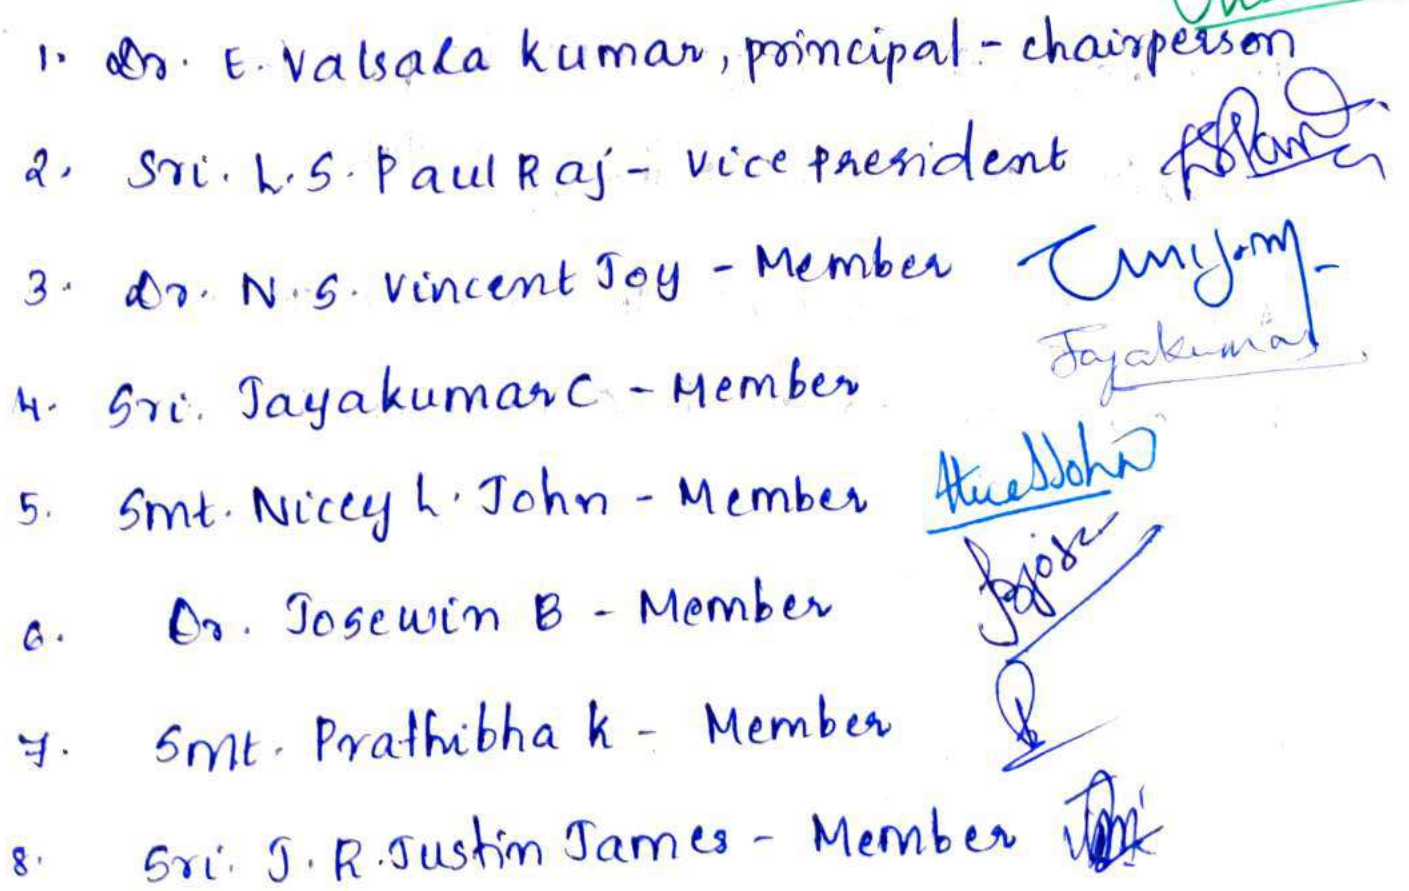 1. Dr. E. Valsala kumar, principal - chairperson
2. Sri. L.S. Paul Raj - Vice president
3. Dr. N.S. Vincent Joy - Member
Jayakumar
4. Sri. Jayakumar C - Member
5. Smt. Nicey L. John - Member
6. Dr. Josewin B - Member
7. Smt. Prathibha K - Member
8. Sri. J.R. Justin James - Member